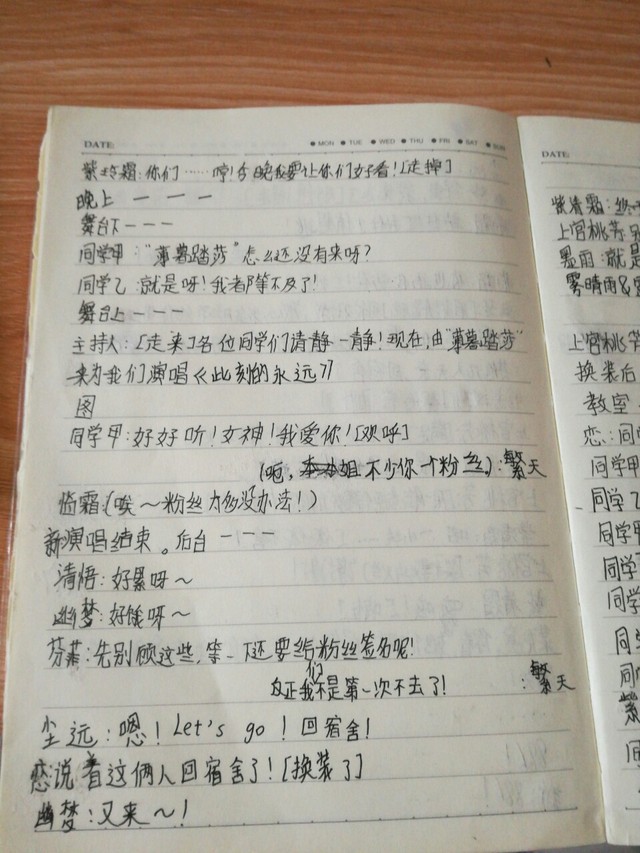 DATE:
MON TUE WED THU FRI SAT SUN
紫玲霜:你们……哼!今晚我要让你们好看![走掉]
晚上 一 一 一
舞台下一一一
同学甲:“薄暮踏莎”怎么还没有来呀?
同学乙:就是呀!我都等不及了!
舞台上一一一
主持人:[走来]各位同学们请静一静!现在,由“薄暮踏莎”
来为我们演唱《此刻的永远7》
图
同学甲:好好听!女神!我爱你![欢呼]
(呃,姐不少你一个粉丝):繁天
霜:(唉~粉丝太多没办法!)
演唱结束。后台 一一一
清悟:好累呀~
幽梦:好饿呀~
芬:先别顾这些,等一下还要给粉丝签名呢!
反正我们不是第一次不去了! :繁天
尘远:嗯!Let's go!回宿舍!
恋说着这俩人回宿舍了![换装了]
幽梦:又来~!
DATE:
紫清霜:
上官桃
暮雨:就是
雾晴雨&
上官桃
换装后
教室
恋:同
同学甲
同学乙
同学甲
同学
同学
同学
同
紫
同